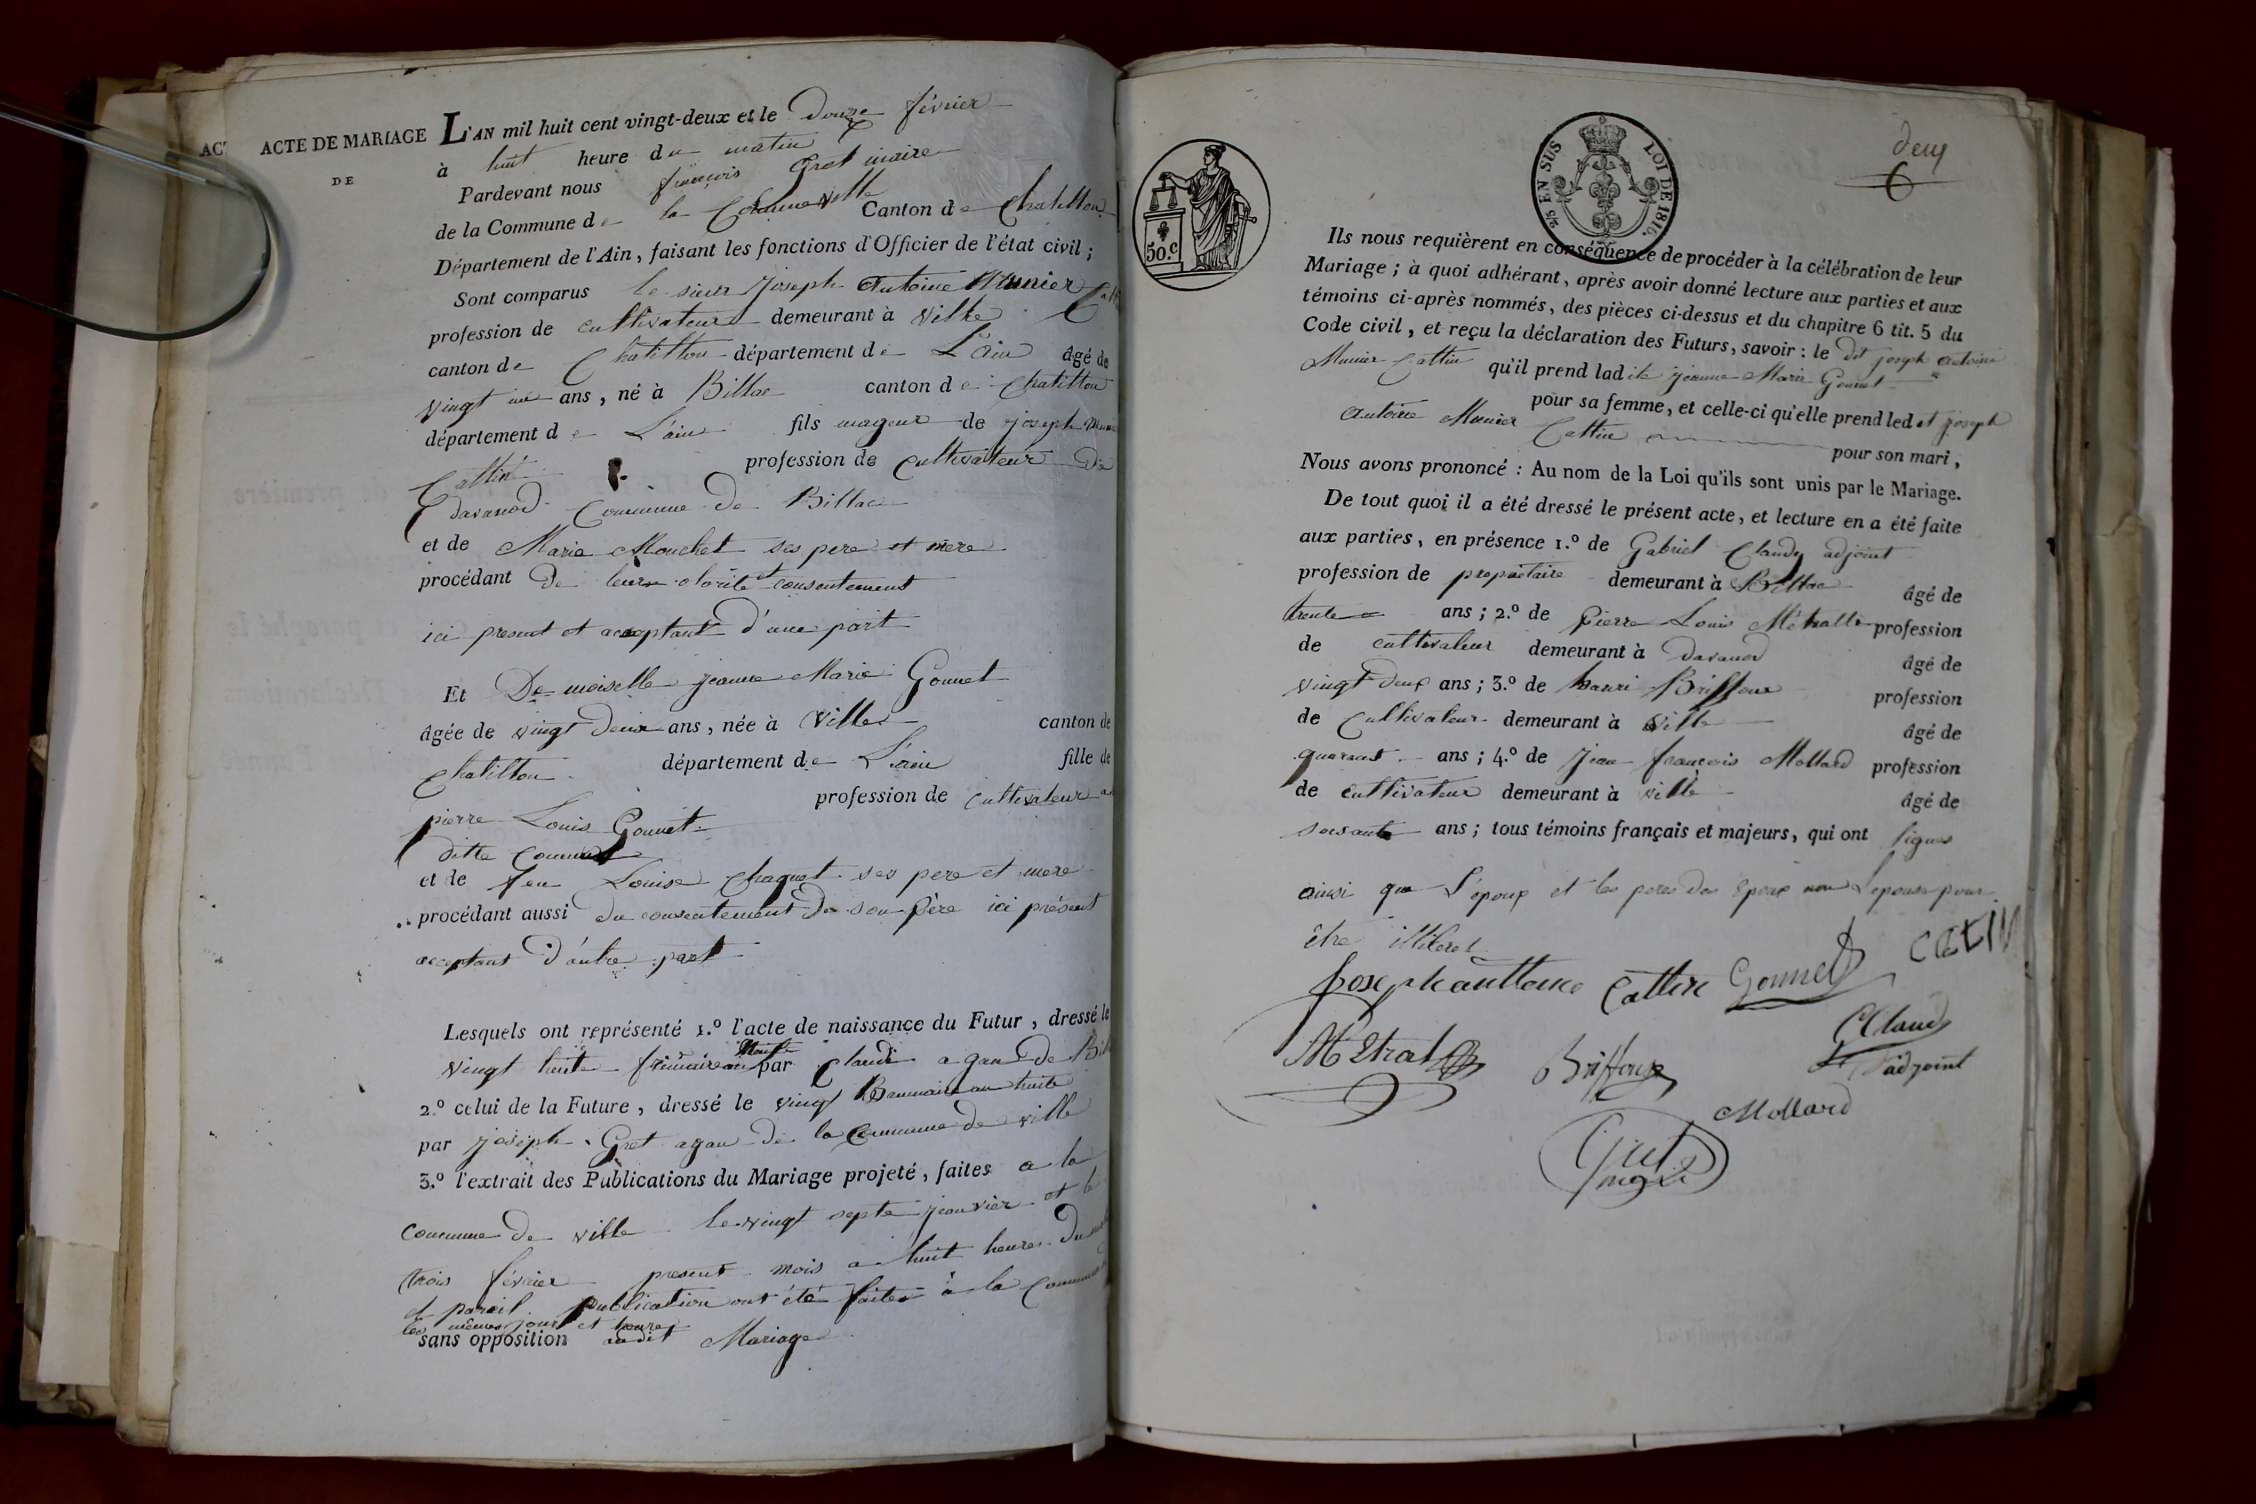 ACT
ACTE DE MARIAGE
DE
L'AN mil huit cent vingt-deux et le douze février
à huit heure du matin
Pardevant nous françois Gret maire
de la Commune de la Commune ville Canton de Chatillon
Département de l'Ain, faisant les fonctions d'Officier de l'état civil;
Sont comparus le sieur Joseph Antoine Munier
profession de cultivateur demeurant à Ville
canton de Chatillon département de L'ain âgé de
vingt un ans, né à Billac canton de Chatillon
département de L'ain fils mageur de joseph
Cattin profession de cultivateur
davanod Commune de Billac
et de Marie Mouchet ses pere et mere
procédant de leur et consentement
ici present et acceptant d'une part
Et De moiselle jeanne Marie Gonnet
âgée de vingt deux ans, née à Ville canton de
Chatillon département de L'ain fille de
pierre Louis Gonnet profession de cultivateur
ditte commune
et de feu Louise Chaquet ses pere et mere
procédant aussi du consentement de son père ici présent
acceptant d'autre part
Lesquels ont représenté 1.º l'acte de naissance du Futur, dressé le
vingt huit frimaire an par Claude agant de
2.º celui de la Future, dressé le vingt Brumaire an huite
par joseph Gret agan de la Commune de ville
3.º l'extrait des Publications du Mariage projeté, faites a la
commune de ville le vingt septe janvier et le
trois février present mois a huit heures du
et pareil publication ont été faites à la commune
les mêmes jour et heures
sans opposition audit Mariage
50.C
25 EN SUS LOI DE 1816.
deux
6
Ils nous requièrent en conséquence de procéder à la célébration de leur
Mariage; à quoi adhérant, après avoir donné lecture aux parties et aux
témoins ci-après nommés, des pièces ci-dessus et du chapitre 6 tit. 5 du
Code civil, et reçu la déclaration des Futurs, savoir: le dit joseph antoine
Munier Cattin qu'il prend ladite jeanne Marie Gonnet
pour sa femme, et celle-ci qu'elle prend ledit joseph
antoine Munier Cattin pour son mari,
Nous avons prononcé: Au nom de la Loi qu'ils sont unis par le Mariage.
De tout quoi il a été dressé le présent acte, et lecture en a été faite
aux parties, en présence 1.º de Gabriel Claudy adjoint
profession de propriétaire demeurant à Billac âgé de
trente ans; 2.º de pierre Louis Métralle profession
de cultivateur demeurant à davanod âgé de
vingt deux ans; 3.º de hanri Briffoux profession
de Cultivateur demeurant à ville âgé de
quarant ans; 4.º de Jean françois Mollard profession
de cultivateur demeurant à ville âgé de
soisante ans; tous témoins français et majeurs, qui ont signes
ainsi que L'epoux et les peres des Epoux non L'epouse pour
être illiteret
joseph anttoine Cattin Gonnet Catin
Métral Briffoux Claudy
adjoint
Mollard
Gret